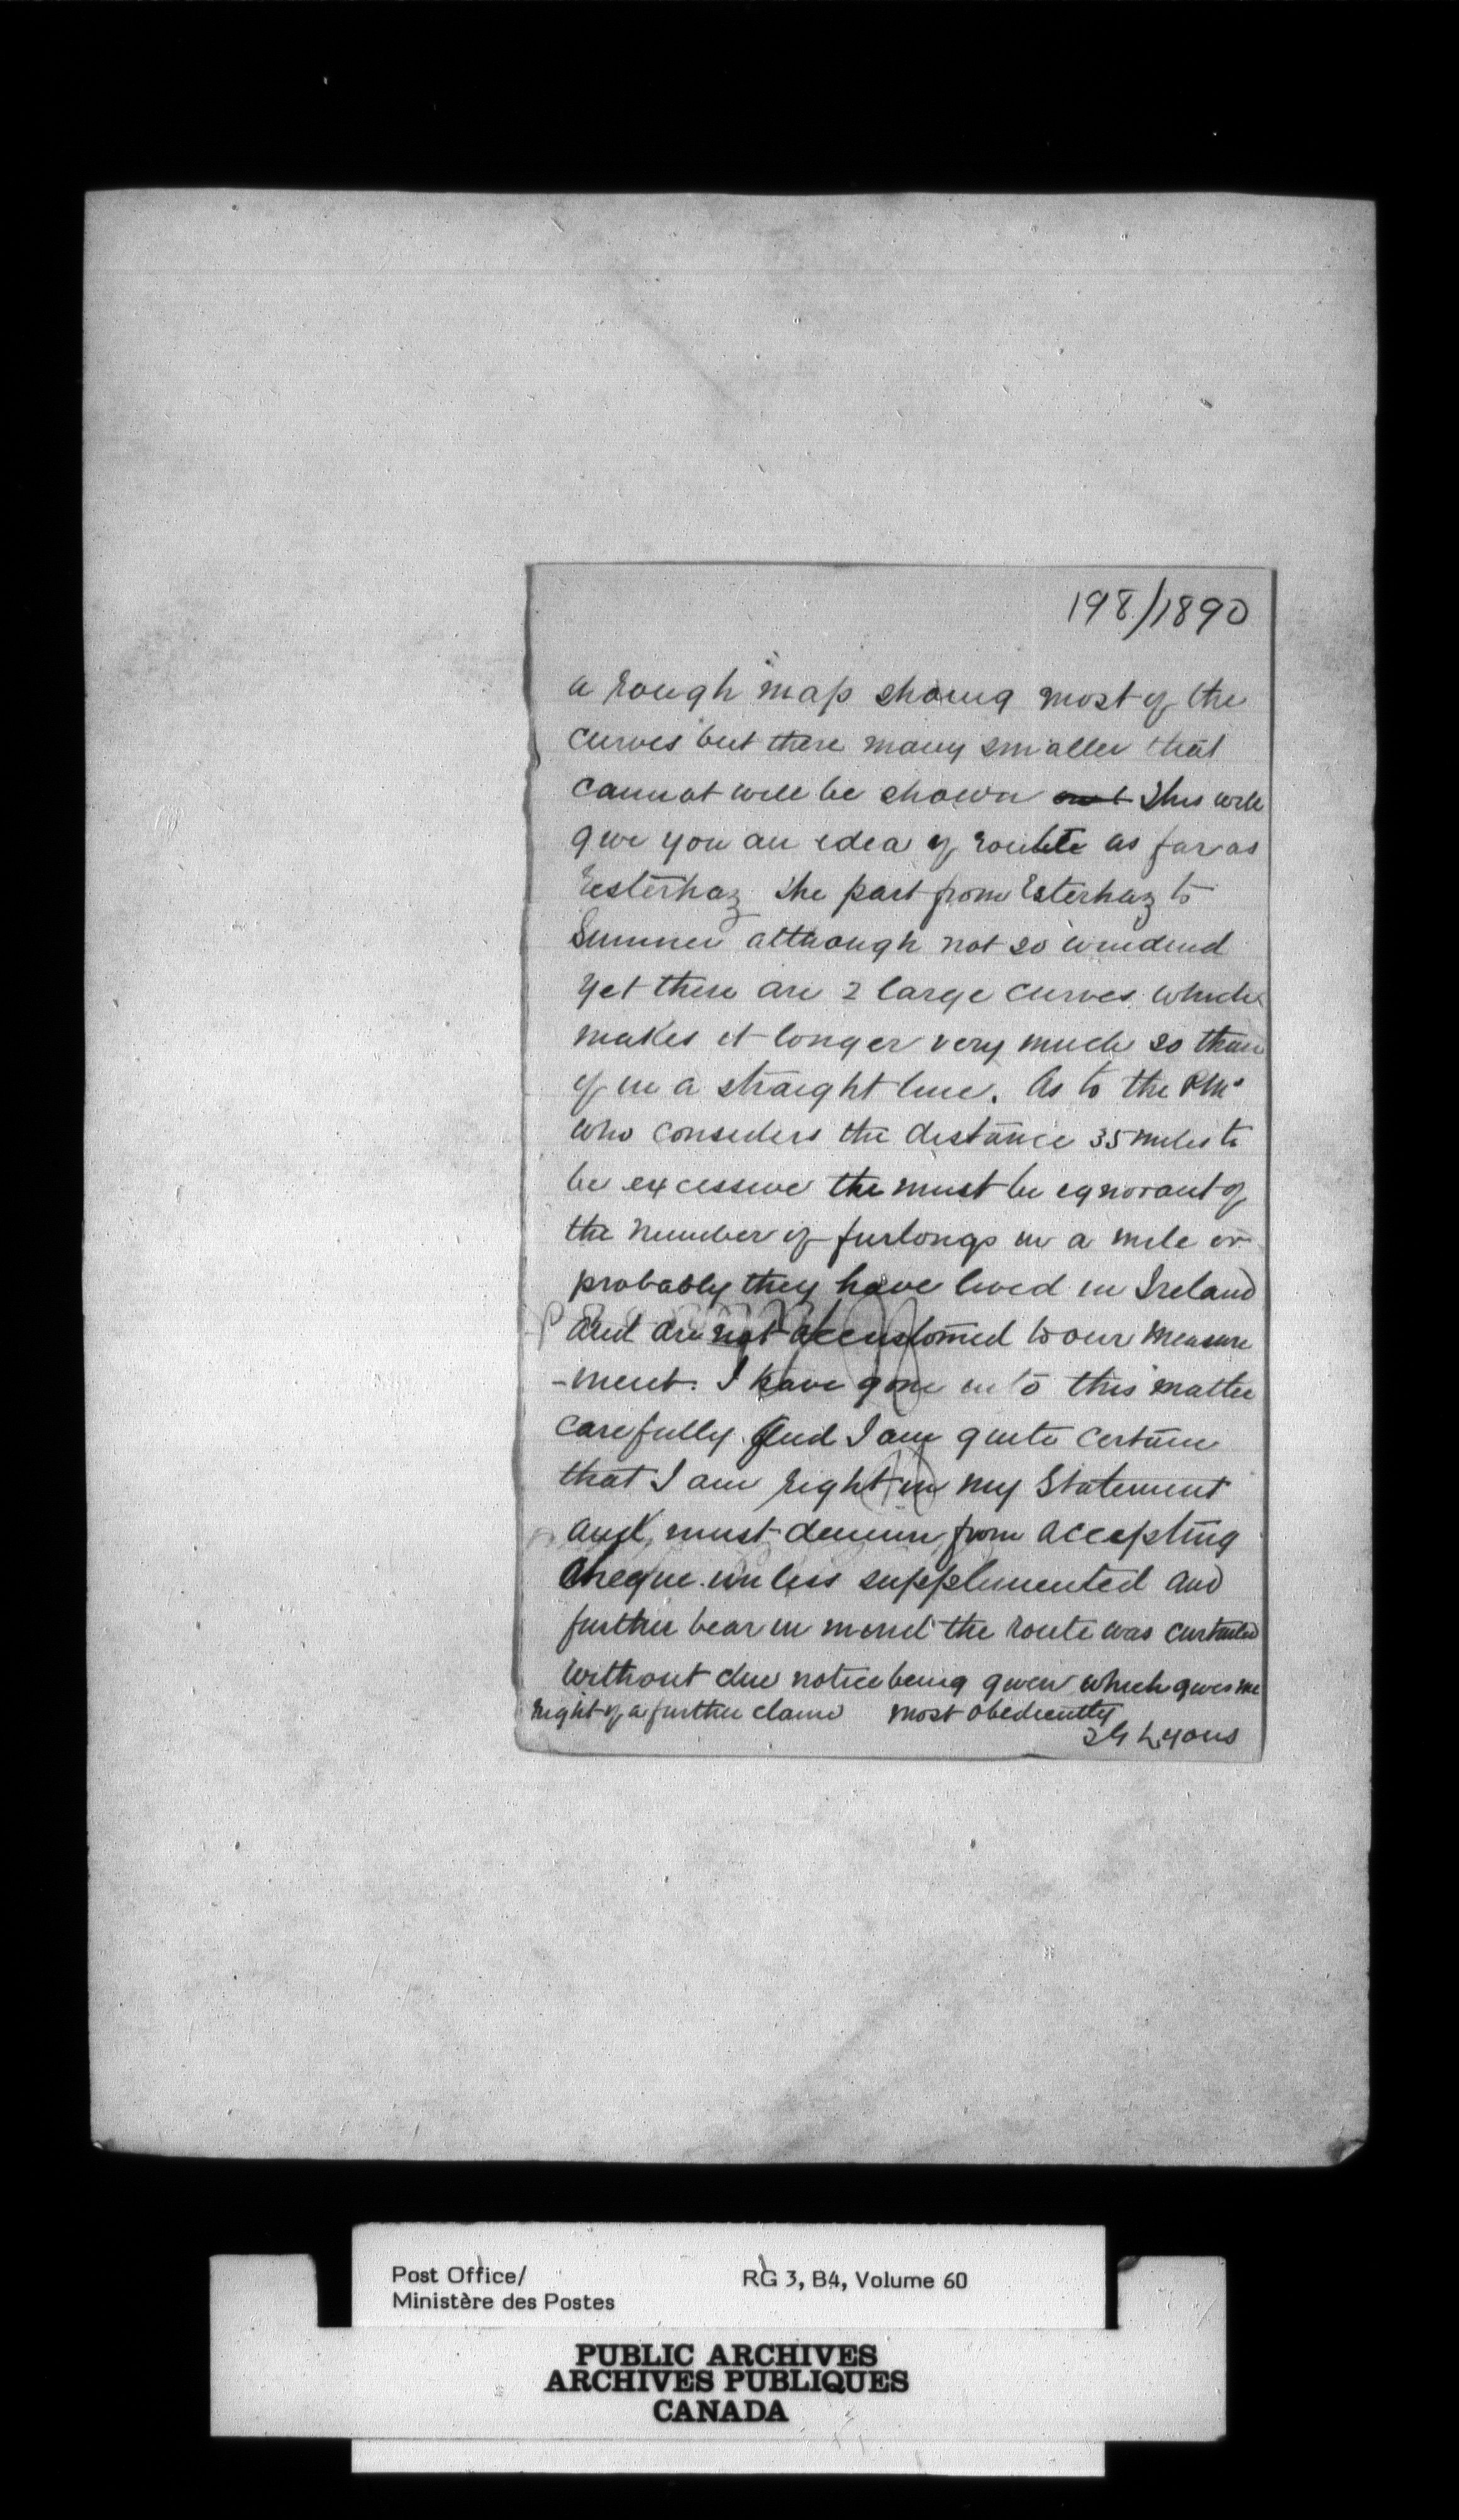 198/1890
a rough map showing most of the
curves but there many smaller that
cannot well be shown out This will
give you an idea of route as far as
Esterhaz The part from Esterhaz to
Sumner although not so
yet there are 2 large curves which
makes it longer very much so than
if in a straight line. As to the PMs
who considers the distance 35 miles to
be excessive the must be ignorant of
the number of furlongs in a mile or
probably they have lived in Ireland
and are not accustomed to our measure
-ment. I have gone into this matter
carefully And I am quite certain
that I am right in my Statement
and must from accepting
Cheque unless supplemented and
further bear in mind the route was curtailed
without due notice being given which gives me
right of a further claim most obediently
Lyons
Post Office/
Ministère des Postes
RG 3, B4, Volume 60
PUBLIC ARCHIVES
ARCHIVES PUBLIQUES
CANADA